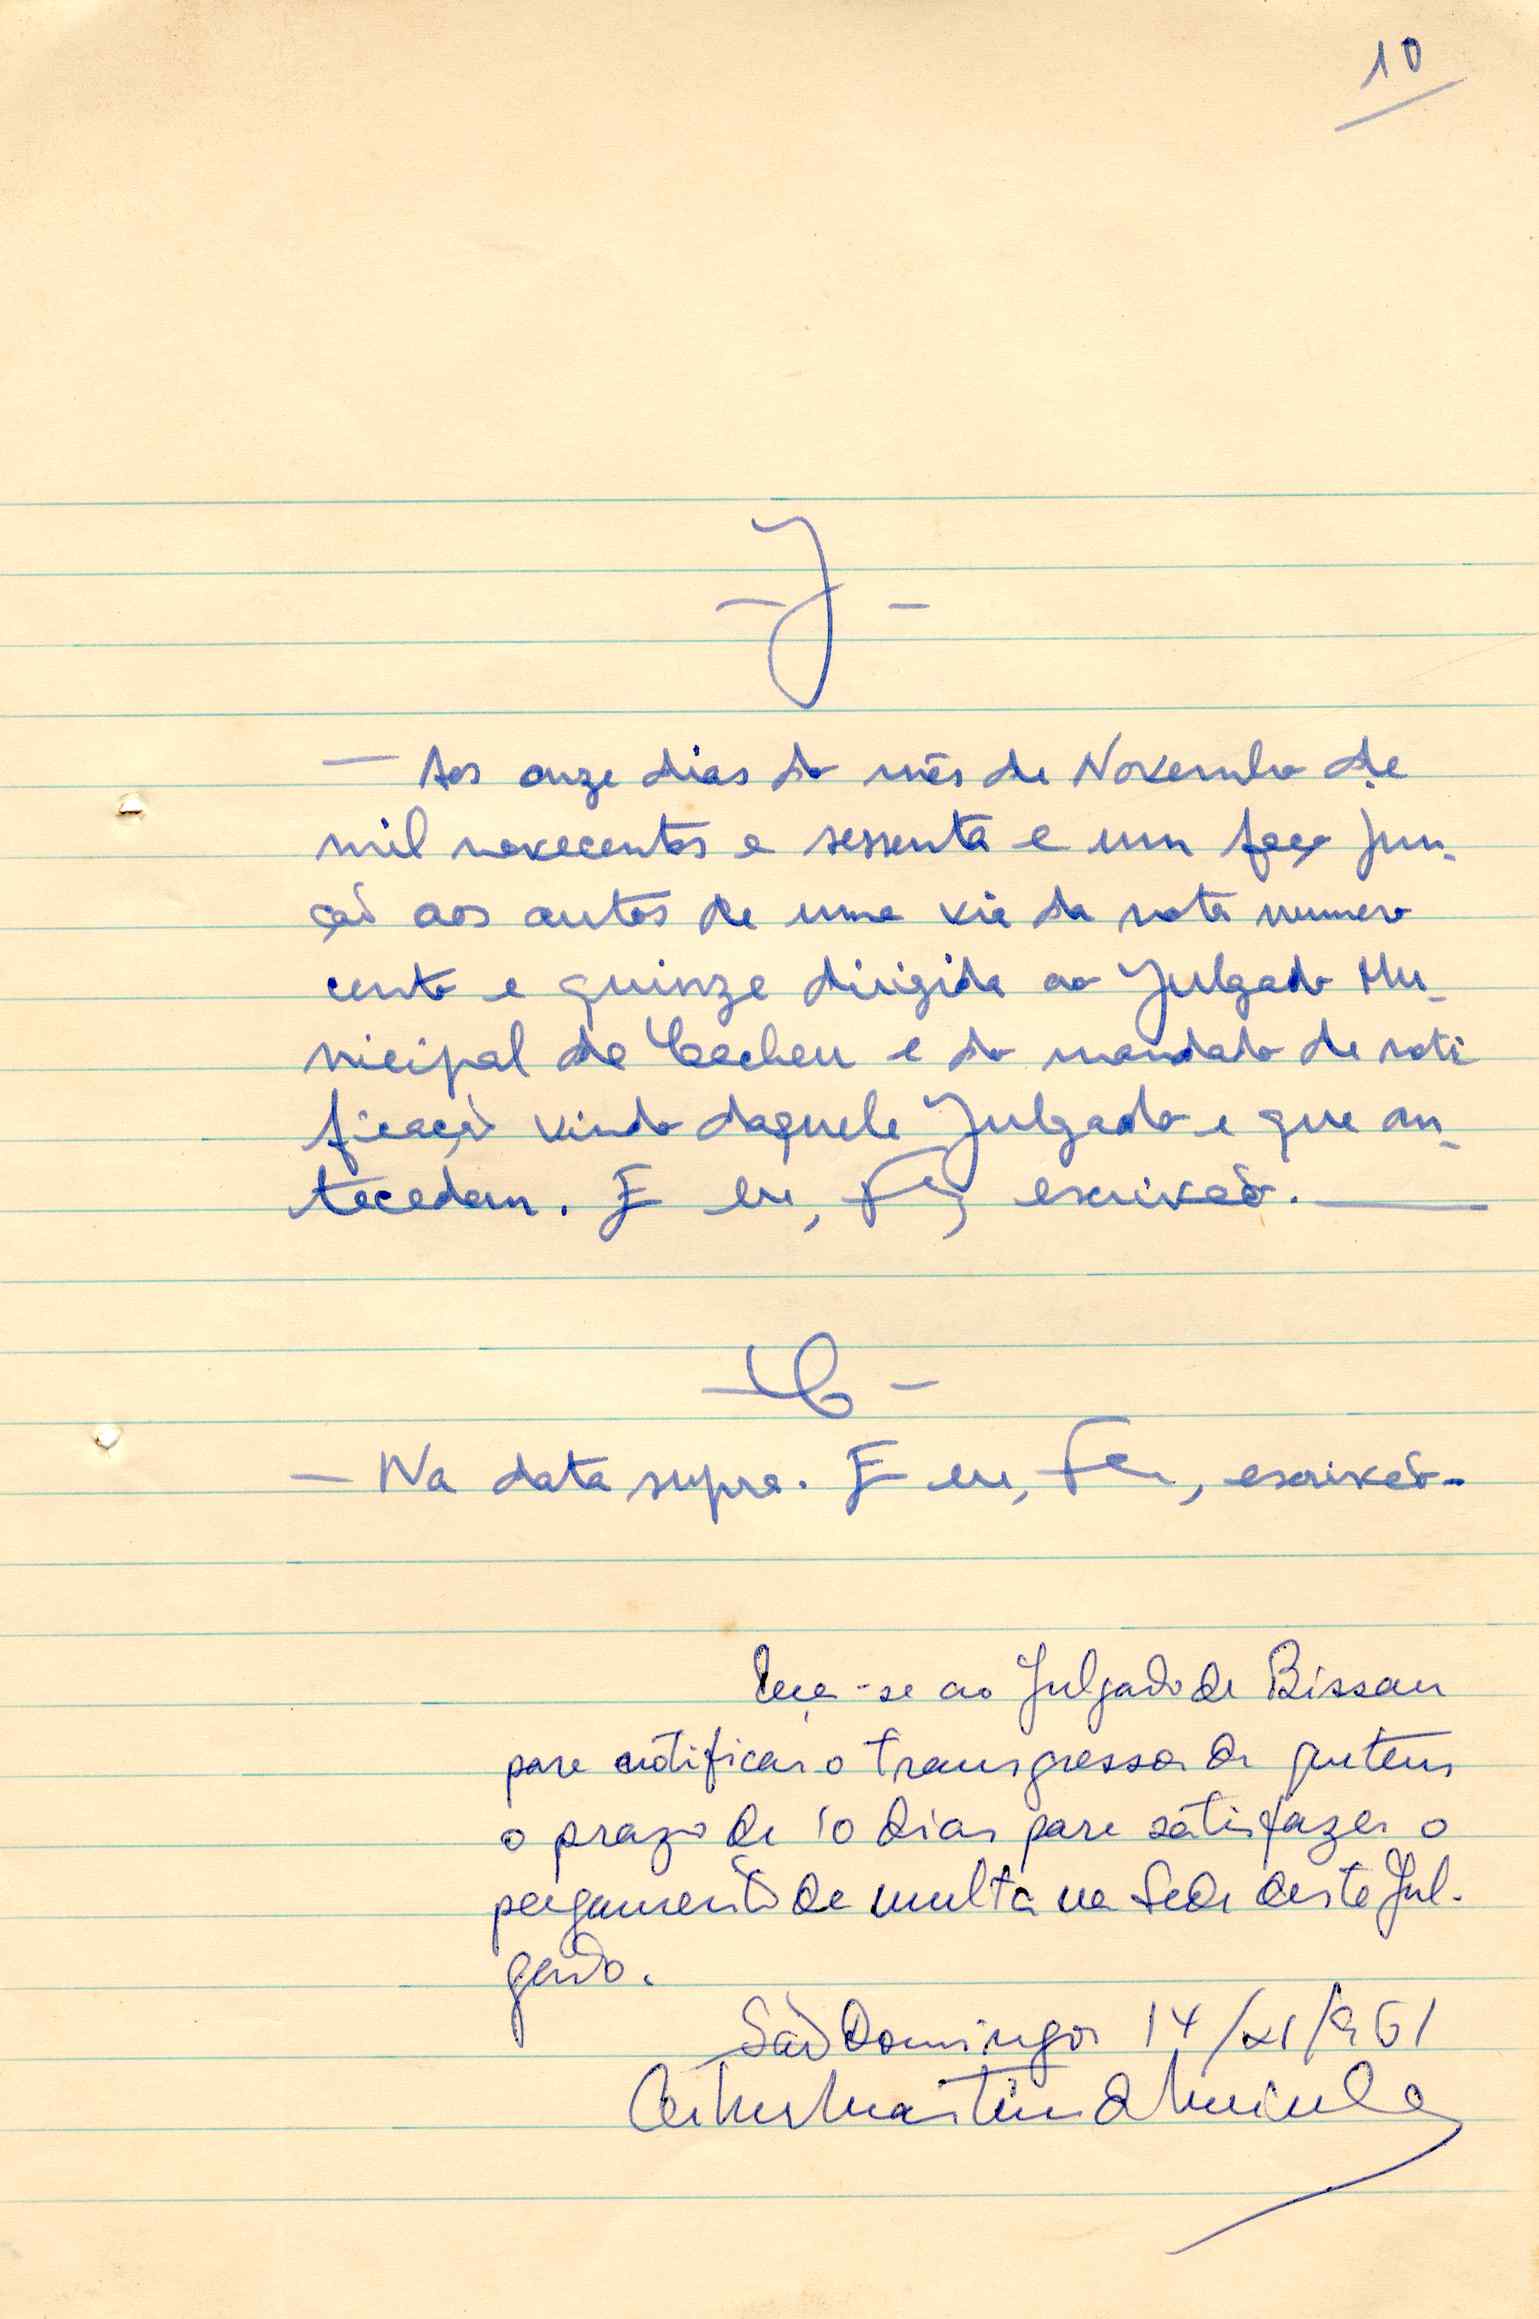 10
- J -
— Aos onze dias do mês de Novembro de
mil novecentos e sessenta e um faço jun-
ção aos autos de uma via da nota numero
cento e quinze dirigida ao Julgado Mu-
nicipal de Cacheu e do mandado de noti
ficação vindo daquele Julgado e que an-
tecedem. E eu, escrivão. —
- C -
— Na data supra. E eu, escrivão -
Peça-se ao Julgado de Bissau
para notificar o transgressor de que tem
o prazo de 10 dias para satisfazer o
pagamento da multa na Sede deste Jul-
gado.
São Domingos 14/XI/961